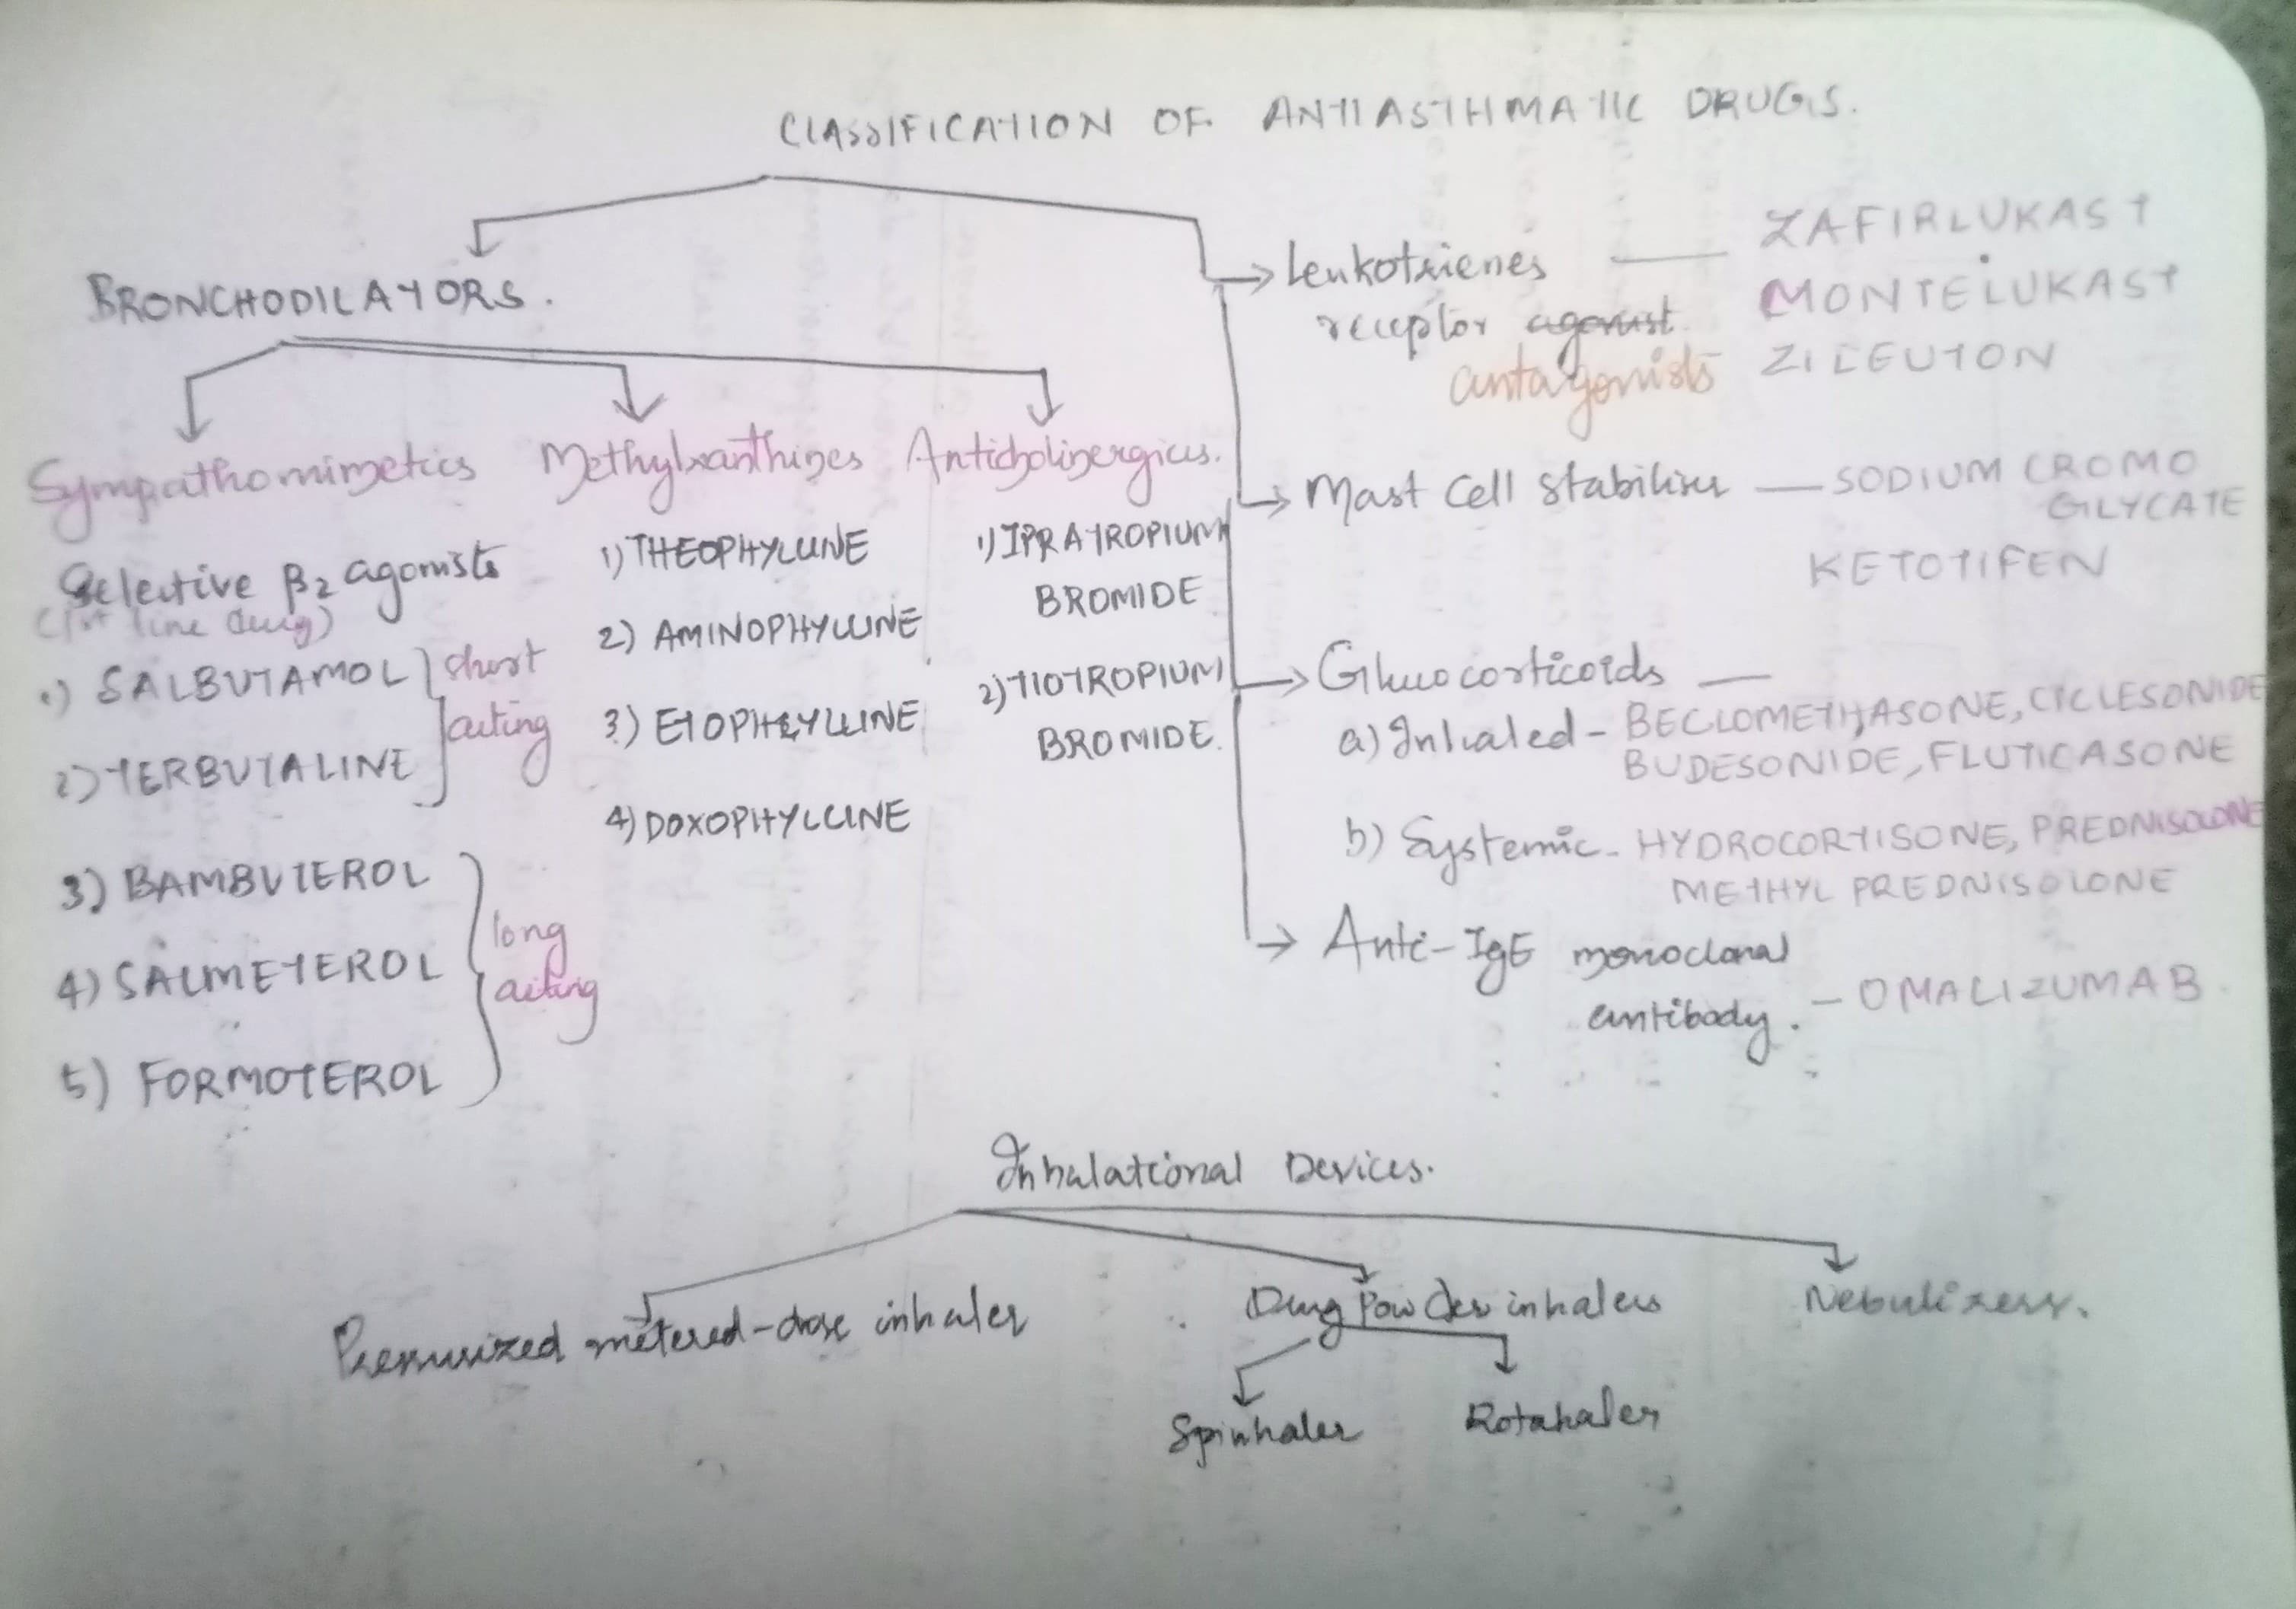 CLASSIFICATION OF ANTIASTHMATIC DRUGS.
BRONCHODILATORS.
Sympathomimetics
Selective β2 agonists
(1st line drug)
1) SALBUTAMOL
2) TERBUTALINE
short
acting
3) BAMBUTEROL
4) SALMETEROL
5) FORMOTEROL
long
acting
Methylxanthines
1) THEOPHYLLINE
2) AMINOPHYLLINE
3) ETOPHYLLINE
4) DOXOPHYLLINE
Anticholinergics.
1) IPRATROPIUM
BROMIDE
2) TIOTROPIUM
BROMIDE.
Leukotrienes
receptor agonist
antagonists
ZAFIRLUKAST
MONTELUKAST
ZILEUTON
Mast Cell stabiliser — SODIUM CROMO
GLYCATE
KETOTIFEN
Glucocorticoids —
a) Inhaled - BECLOMETHASONE, CICLESONIDE
BUDESONIDE, FLUTICASONE
b) Systemic - HYDROCORTISONE, PREDNISOLONE
METHYL PREDNISOLONE
Anti-IgE monoclonal
antibody. — OMALIZUMAB.
Inhalational Devices.
Pressurized metered-dose inhaler
Drug Powder inhalers
Spinhaler
Rotahaler
Nebulizers.